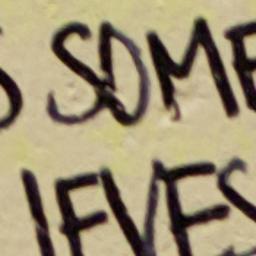 S SOME
IEVES